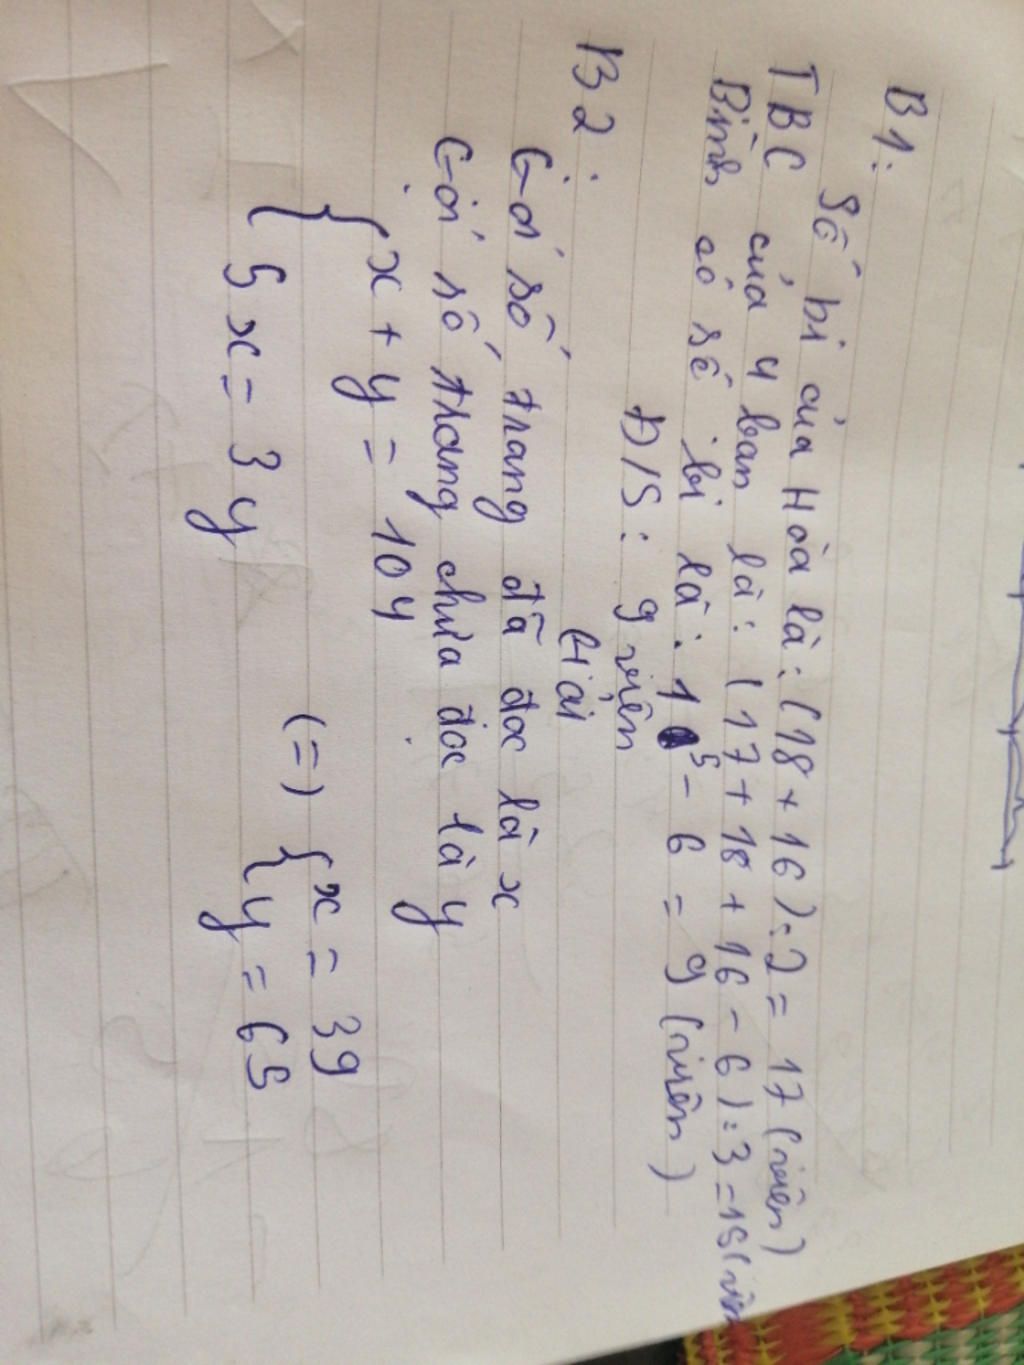 B1:
Số bi của Hòa là: (18 + 16):2 = 17 (viên)
TBC của 4 bạn là: (17 + 18 + 16 - 6):3 = 15 (viên
Bình có số bi là: 15 - 6 = 9 (viên)
Đ/S: 9 viên
B2:
Hải
Gọi số trang đã đọc là x
Gọi số trang chưa đọc là y
{ x + y = 104
{ 5x = 3y
(=) { x = 39
{ y = 65